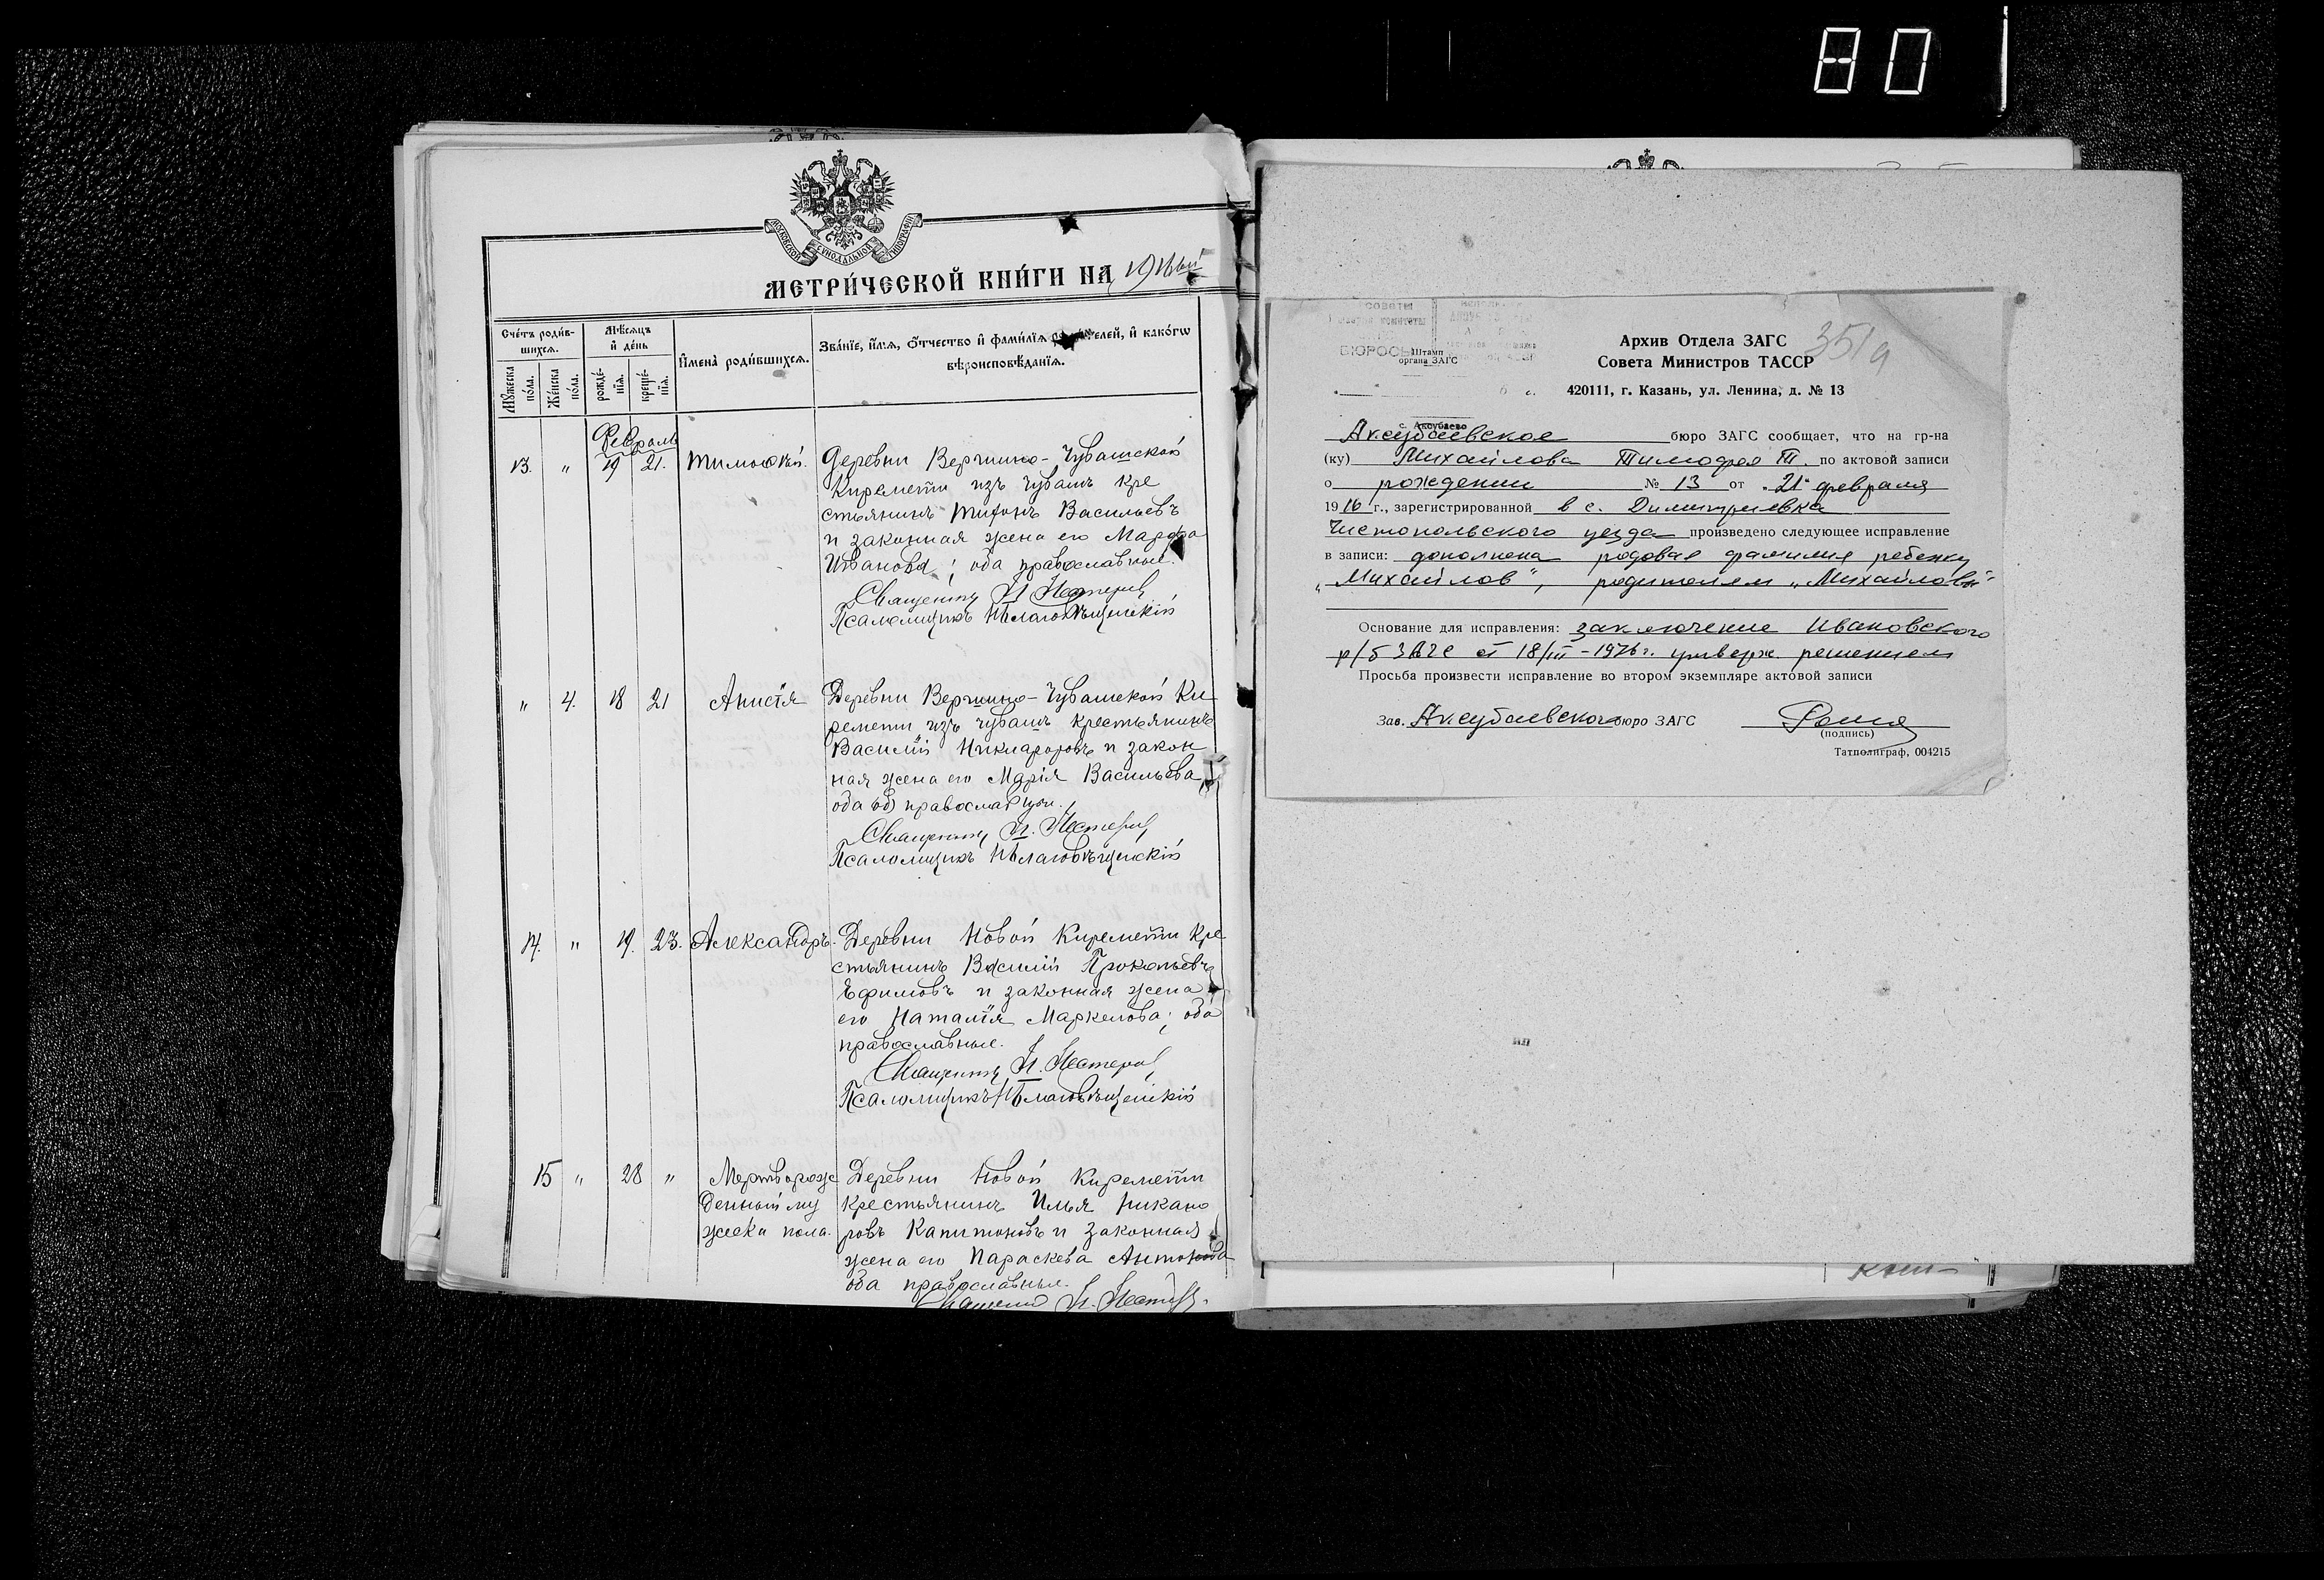 80
МОСКОВСКОЙ СѴНОДАЛЬНОЙ ТИПОГРАФІИ
МЕТРИ́ЧЕСКОЙ КНИ́ГИ НА 1916ый
Сче́тъ роди́в-
шихсѧ.
Мѣ́сѧцъ
и҆ де́нь
И҆мена̀ роди́вшихсѧ.
Зва́нїе, и҆́мѧ, ѻ҆́тчество и҆ фами́лїѧ роди́телей, и҆ како́гѡ
вѣроисповѣ́данїѧ.
Мꙋ́жеска
по́ла.
Же́нска
по́ла.
рожде́-
нїѧ.
креще́-
нїѧ.
Февраль
13. " 19 21. Тимоѳей. Деревни Вершино-Чувашской
Киремети изъ чувашъ кре
стьянинъ Тихонъ Васильевъ
и законная жена его Марѳа
Иванова; оба православные.
Священникъ И. Нестеровъ
Псаломщикъ Н Благовѣщенскій
" 4. 18 21 Анисія Деревни Вершино-Чувашской Ки
ремети изъ чувашъ крестьянинъ
Василій Никифоровъ и закон
ная жена его Марія Васильева
оба православные.
Священникъ И. Нестеровъ
Псаломщикъ Н Благовѣщенскій
14. " 19. 23. Александръ. Деревни Новой Киремети кре
стьянинъ Василій Прокопьевъ
Ефимовъ и законная жена
его Наталія Маркелова; оба
православные.
Священникъ И. Нестеровъ
Псаломщикъ Н Благовѣщенскій
15 " 28 " Мертворож Деревни Новой Киремети
денный му крестьянинъ Илья Никано
жеска пола. ровъ Капитоновъ и законная
жена его Параскева Антонова
оба православные.
Священникъ И. Нестеровъ
Штамп
органа ЗАГС
351а
Архив Отдела ЗАГС
Совета Министров ТАССР
420111, г. Казань, ул. Ленина, д. № 13
с. Аксубаево
Аксубаевское бюро ЗАГС сообщает, что на гр-на
(ку) Михайлова Тимофея Т. по актовой записи
о рождении № 13 от „21" февраля
1916 г., зарегистрированной в с. Димитриевка
Чистопольского уезда произведено следующее исправление
в записи: дополнена родовая фамилия ребенку
„Михайлов", родителям „Михайловы"
Основание для исправления: заключение Ивановского
р/б ЗАГС от 18/III-1976 г. утверж. решением
Просьба произвести исправление во втором экземпляре актовой записи
Зав. Аксубаевского бюро ЗАГС
(подпись)
Татполиграф, 004215